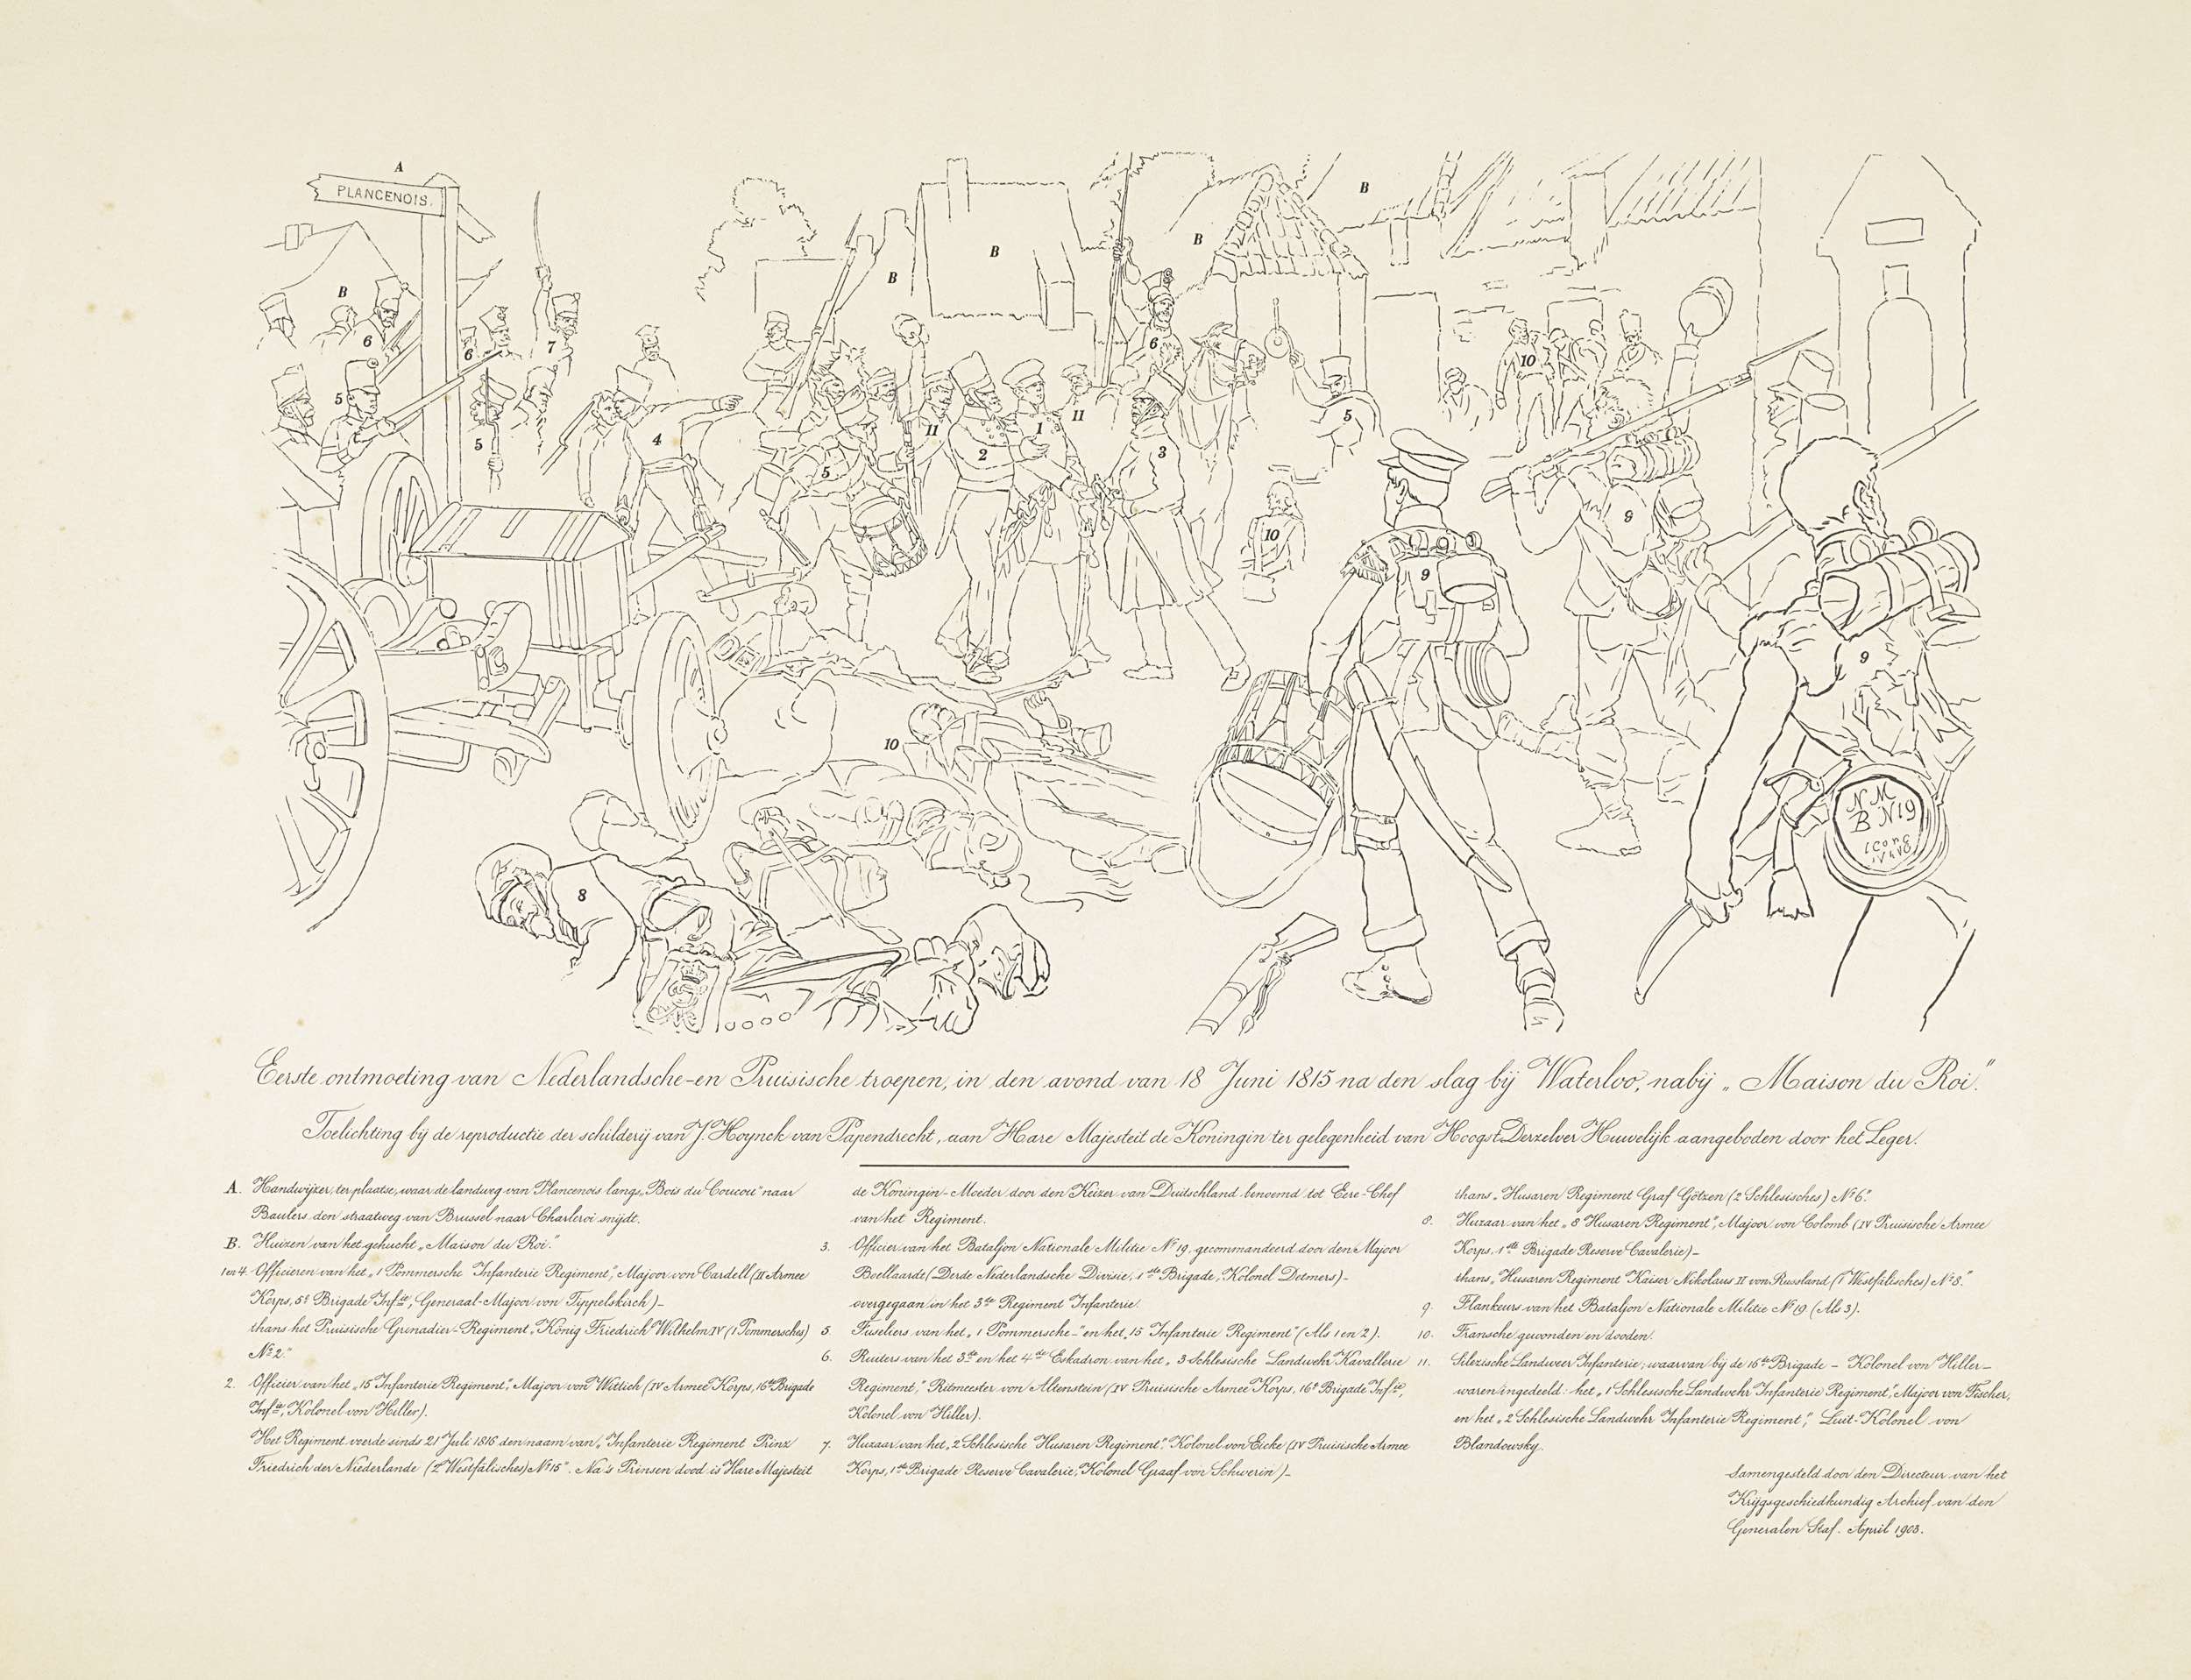 A
PLANCENOIS.
B
B
B
B
B
6
6
7
6
5
5
4
5
11
2
1
11
3
5
10
10
9
9
9
10
8
N M
B N 19
Eerste ontmoeting van Nederlandsche- en Pruisische troepen, in den avond van 18 Juni 1815 na den slag bij Waterloo, nabij „Maison du Roi."
Toelichting bij de reproductie der schilderij van J. Hoynck van Papendrecht, aan Hare Majesteit de Koningin ter gelegenheid van Hoogst Derzelver Huwelijk aangeboden door het Leger.
A. Handwijzer, ter plaatse, waar de landweg van Plancenois langs „Bois du Coucou" naar
Baulers den straatweg van Brussel naar Charleroi snijdt.
B. Huizen van het gehucht „Maison du Roi."
1 en 4. Officieren van het „1 Pommersche Infanterie Regiment", Majoor von Cardell (II Armee
Korps, 5e Brigade Infie, Generaal-Majoor von Tippelskirch)_
thans het Pruisische Grenadier-Regiment „König Friedrich Wilhelm IV (1 Pommersches)
No 2."
2. Officier van het „15 Infanterie Regiment", Majoor von Wittich (IV Armee Korps, 16de Brigade
Infie, Kolonel von Hiller).
Het Regiment voerde sinds 21 Juli 1816 den naam van „Infanterie Regiment Prinz
Friedrich der Niederlande (2e Westfälisches) No 15". Na 's Prinsen dood is Hare Majesteit
de Koningin-Moeder door den Keizer van Duitschland benoemd tot Eere-Chef
van het Regiment.
3. Officier van het Bataljon Nationale Militie No 19, gecommandeerd door den Majoor
Boellaard (Derde Nederlandsche Divisie, 1ste Brigade, Kolonel Detmers)_
overgegaan in het 3de Regiment Infanterie.
5. Fuseliers van het „1 Pommersche-" en het „15 Infanterie Regiment" (Als 1 en 2).
6. Ruiters van het 3de en het 4de Eskadron van het „3 Schlesische Landwehr Kavallerie
Regiment", Ritmeester von Altenstein (IV Pruisische Armee Korps, 16e Brigade Infie,
Kolonel von Hiller).
7. Huzaar van het „2 Schlesische Husaren Regiment", Kolonel von Eicke (IV Pruisische Armee
Korps, 1ste Brigade Reserve Cavalerie, Kolonel Graaf von Schwerin)_
thans „Husaren Regiment Graf Götzen (2 Schlesisches) No 6."
8. Huzaar van het „8 Husaren Regiment", Majoor von Colomb (IV Pruisische Armee
Korps, 1ste Brigade Reserve Cavalerie)_
thans „Husaren Regiment Kaiser Nikolaus II von Russland (1 Westfälisches) No 8."
9. Flankeurs van het Bataljon Nationale Militie No 19 (Als 3).
10. Fransche gewonden en dooden.
11. Silezische Landweer Infanterie, waarvan bij de 16de Brigade – Kolonel von Hiller –
waren ingedeeld: het „1 Schlesische Landwehr Infanterie Regiment", Majoor von Fischer,
en het „2 Schlesische Landwehr Infanterie Regiment", Luit-Kolonel von
Blandowsky.
Samengesteld door den Directeur van het
Krijgsgeschiedkundig Archief van den
Generalen Staf. April 1903.